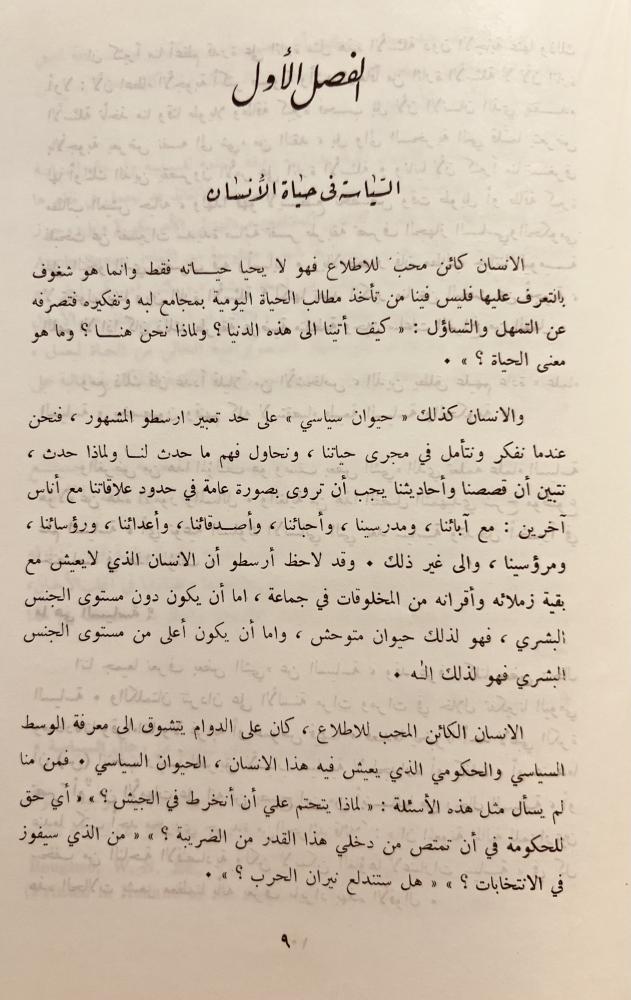 الفصل الأول
السياسة في حياة الأنسان
الانسان كائن محب للاطلاع فهو لا يحيا حيـــاته فقط وانما هو شغوف
بالتعرف عليها فليس فينا من تأخذ مطالب الحياة اليومية بمجامع لبه وتفكيره فتصرفه
عن التمهل والتساؤل : « كيف أتينا الى هذه الدنيا ؟ ولماذا نحن هنـــا ؟ وما هو
معنى الحياة ؟ » •
والانسان كذلك « حيوان سياسي » على حد تعبير ارسطو المشهور ، فنحن
عندما نفكر ونتأمل في مجرى حياتنا ، ونحاول فهم ما حدث لنـــا ولماذا حدث ،
نتبين أن قصصنا وأحاديثنا يجب أن تروى بصورة عامة في حدود علاقاتنا مع أناس
آخرين : مع آبائنا ، ومدرسينا ، وأحبائنا ، وأصـدقائنا ، وأعدائنا ، ورؤسائنا ،
ومرؤسينا ، والى غير ذلك • وقد لاحظ أرسطو أن الانسان الذي لايعيش مع
بقية زملائه وأقرانه من المخلوقات في جماعة ، اما أن يكون دون مستوى الجنس
البشري ، فهو لذلك حيوان متوحش ، واما أن يكون أعلى من مستوى الجنس
البشري فهو لذلك الـٰه •
الانسان الكائن المحب للاطلاع ، كان على الدوام يتشوق الى معرفة الوسط
السياسي والحكومي الذي يعيش فيه هذا الانسان ، الحيوان السياسي • فمن منا
لم يسأل مثل هذه الأسئلة : « لماذا يتحتم علي أن أنخرط في الجيش ؟ » « أي حق
للحكومة في أن تمتص من دخلي هذا القدر من الضريبة ؟ » « من الذي سيفوز
في الانتخابات ؟ » « هل ستندلع نيران الحرب ؟ » •
٩